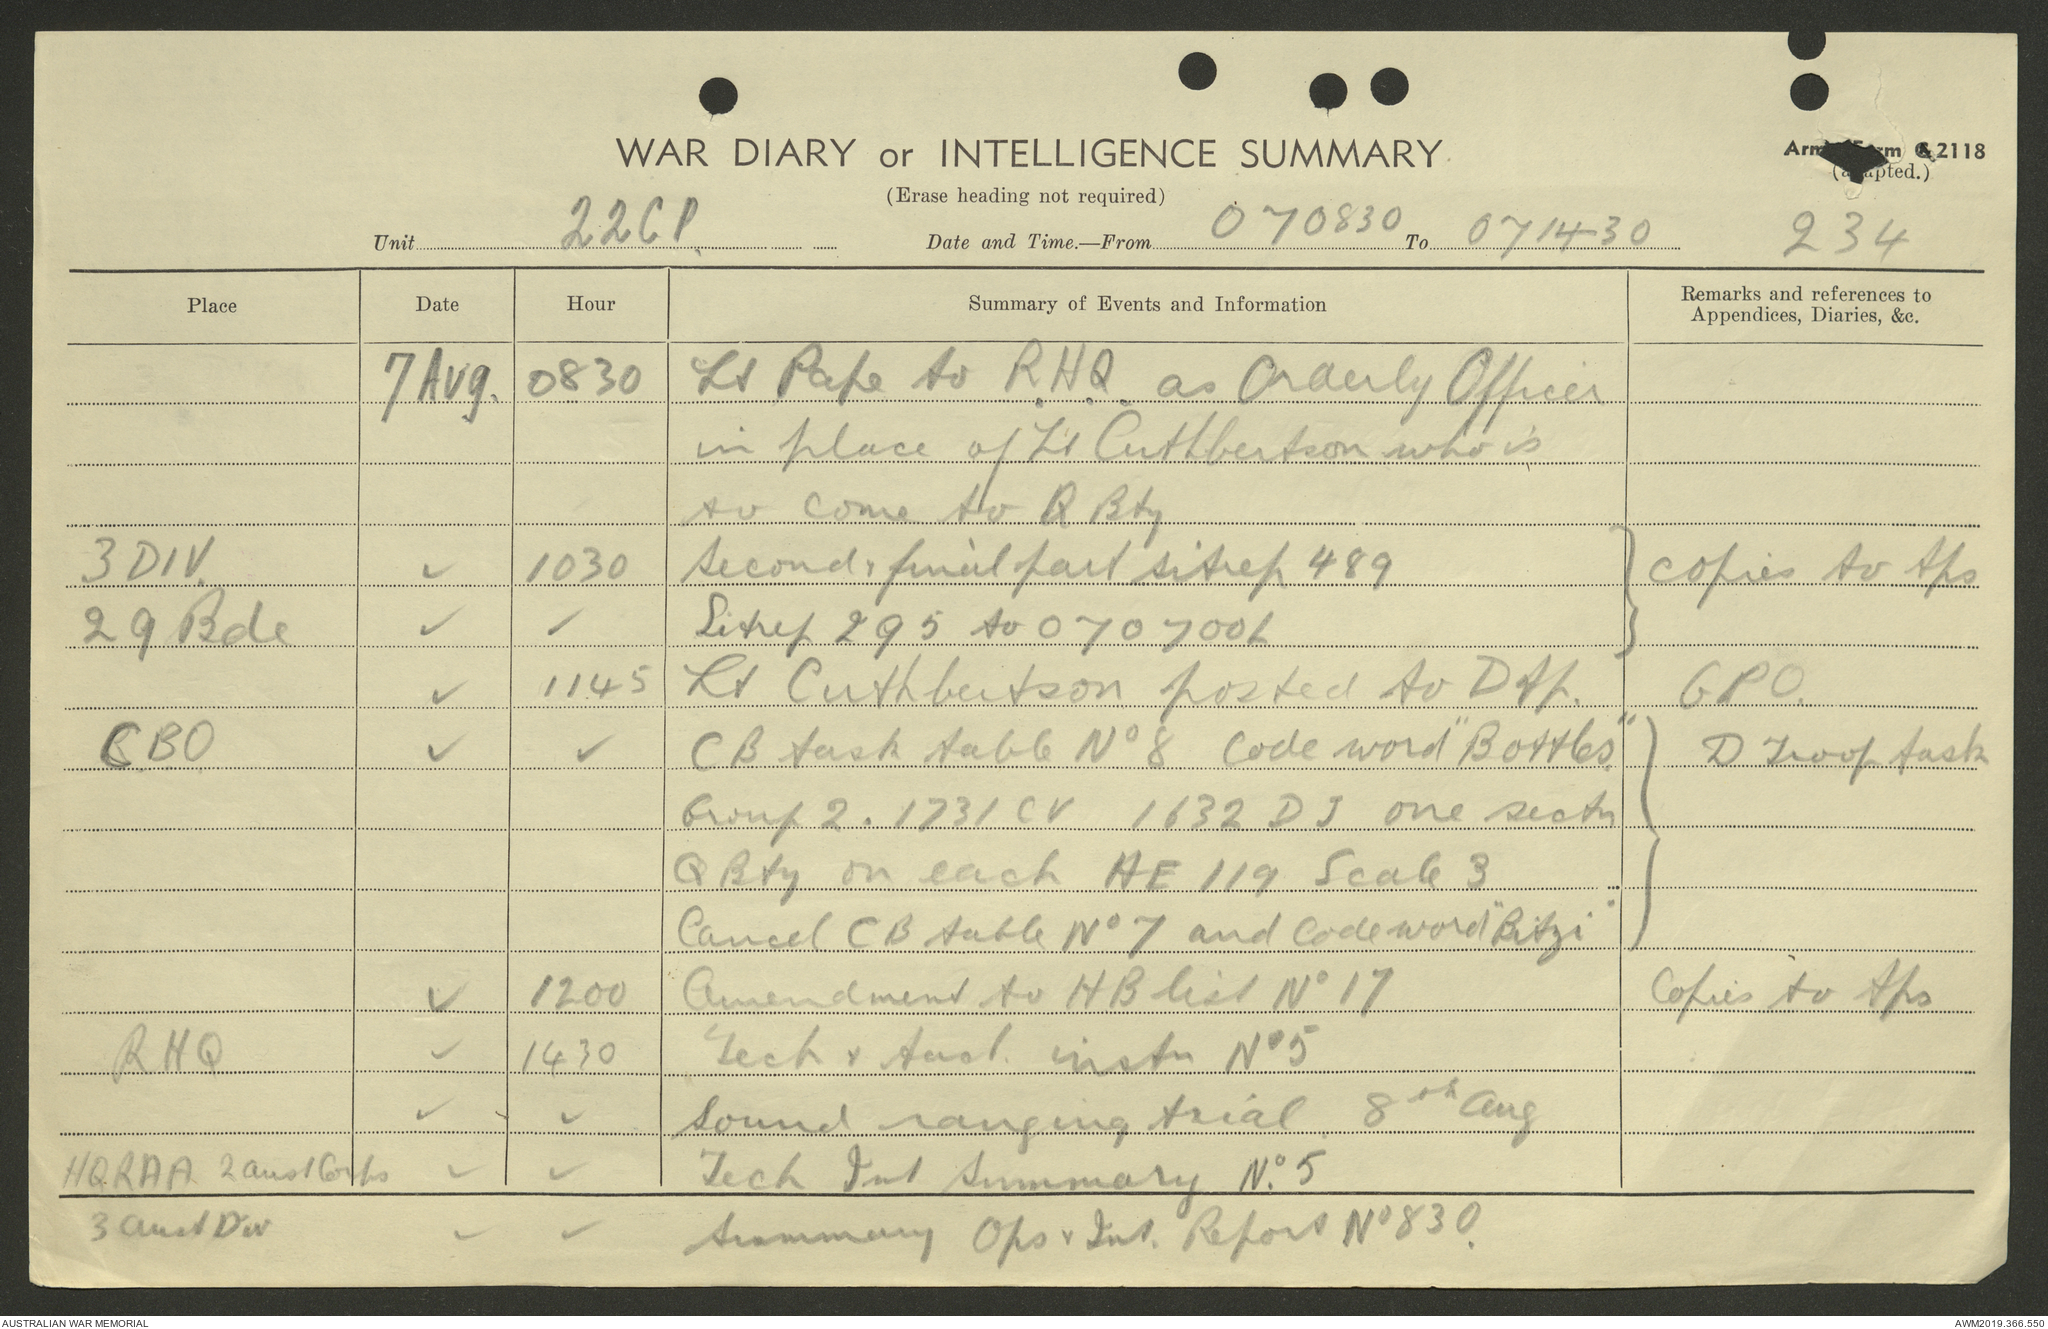 WAR DIARY or INTELLIGENCE SUMMARY
(Erase heading not required)
Army Form C 2118
(adapted.)
Unit 22CP. Date and Time.—From 070830 To 071430 234
Place Date Hour Summary of Events and Information Remarks and references to
Appendices, Diaries, &c.
7 Aug. 0830 Lt Pape to R.H.Q. as Orderly Officer
in place of Lt Cuthbertson who is
to come to Q Bty
3 DIV. ✓ 1030 Second & final part sitrep 489 copies to tps
29 Bde ✓ ✓ Sitrep 295 to 070700L
✓ 1145 Lt Cuthbertson posted to D tp. GPO.
CBO ✓ ✓ CB task table No 8 Code word "Bottles" D Troop task
Group 2. 1731 CV 1632 DJ one sectn
Q Bty on each HE 119 Scale 3
Cancel CB table No 7 and Codeword "Bitzi"
✓ 1200 Amendment to HB list No 17 Copies to tps
RHQ ✓ 1430 Tech & tact. instn No 5
✓ ✓ Sound ranging trial 8th Aug
HQRAA 2 Aust Corps ✓ ✓ Tech Int Summary No. 5
3 Aust Div ✓ ✓ Summary Ops & Int. Report No 830.
AUSTRALIAN WAR MEMORIAL
AWM2019.366.550